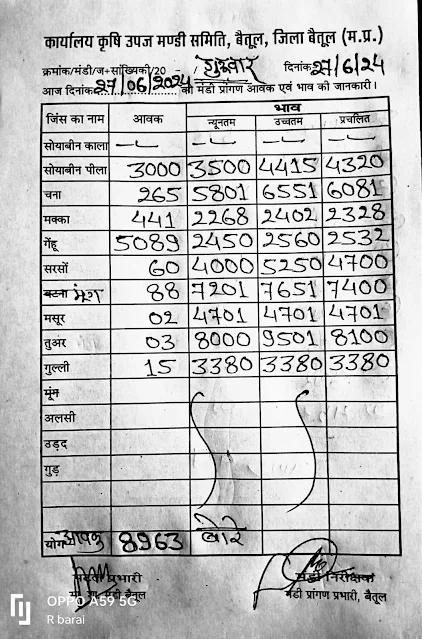 कार्यालय कृषि उपज मण्डी समिति, बैतूल, जिला बैतूल (म.प्र.)
क्रमांक/मंडी/ज+सांख्यिकी/20 / शुक्रवार दिनांक 27/6/24
आज दिनांक 27/06/2024 को मंडी प्रांगण आवक एवं भाव की जानकारी।
जिंस का नाम आवक भाव
न्यूनतम उच्चतम प्रचलित
सोयाबीन काला
सोयाबीन पीला 3000 3500 4415 4320
चना 265 5801 6551 6081
मक्का 441 2268 2402 2328
गेंहू 5089 2450 2560 2532
सरसों 60 4000 5250 4700
बटना मूंग 88 7201 7651 7400
मसूर 02 4701 4701 4701
तुअर 03 8000 9501 8100
गुल्ली 15 3380 3380 3380
मूंग
अलसी
उड़द
गुड़
योग आवक 8963 बोरे
प्रभारी मंडी निरीक्षक
मंडी बैतूल मंडी प्रांगण प्रभारी, बैतूल
OPPO A59 5G
R baral